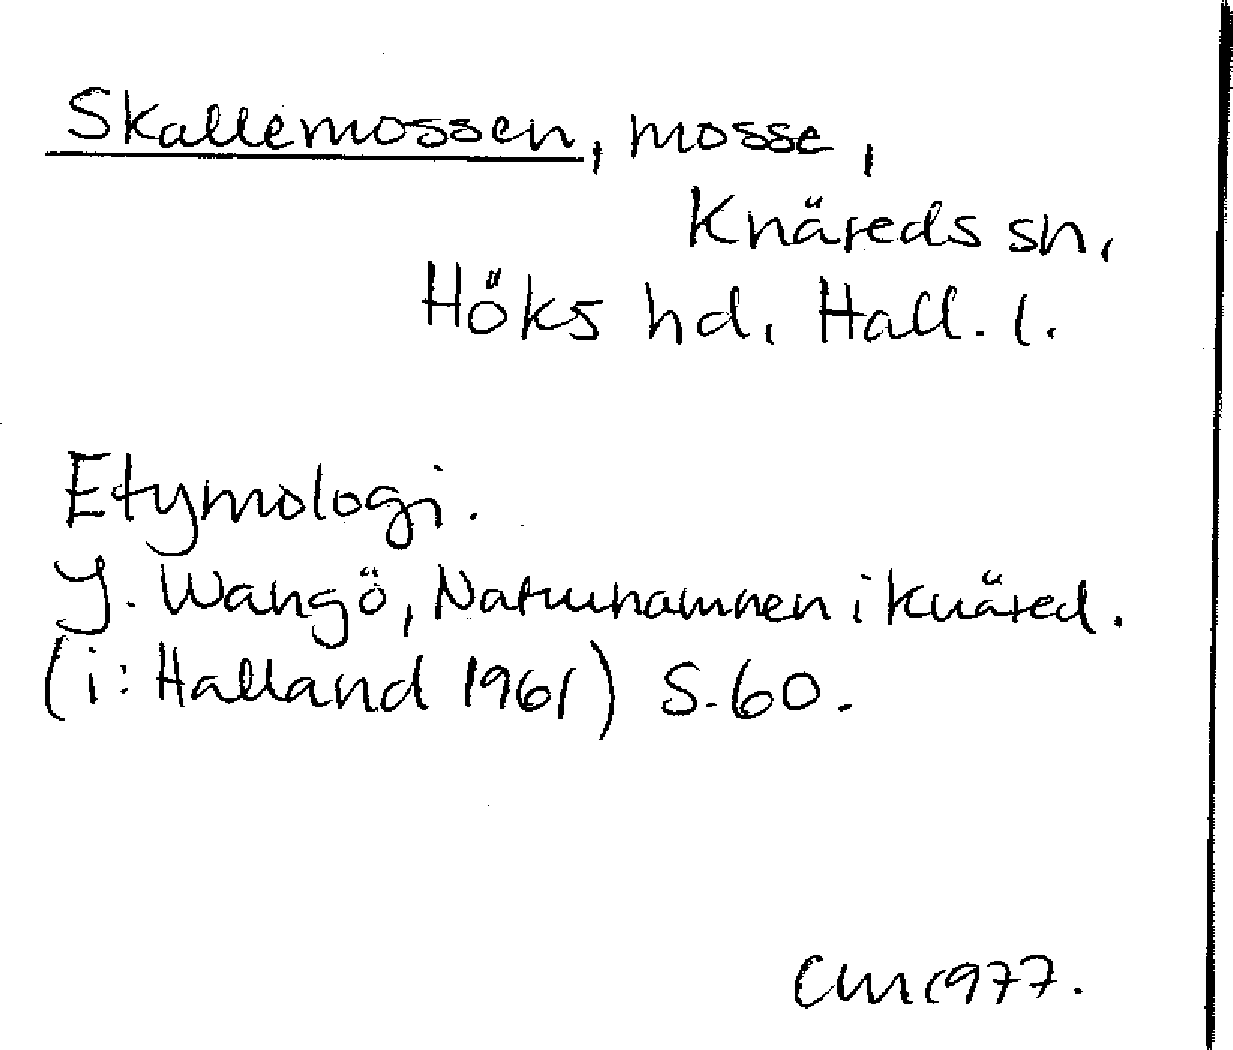 Skallemossen, mosse,
Knäreds sn.
Höks hd. Hall. l.
Etymologi.
J. Wangö, Naturnamnen i Knäred.
(i: Halland 1961) S. 60.
CM 1977.